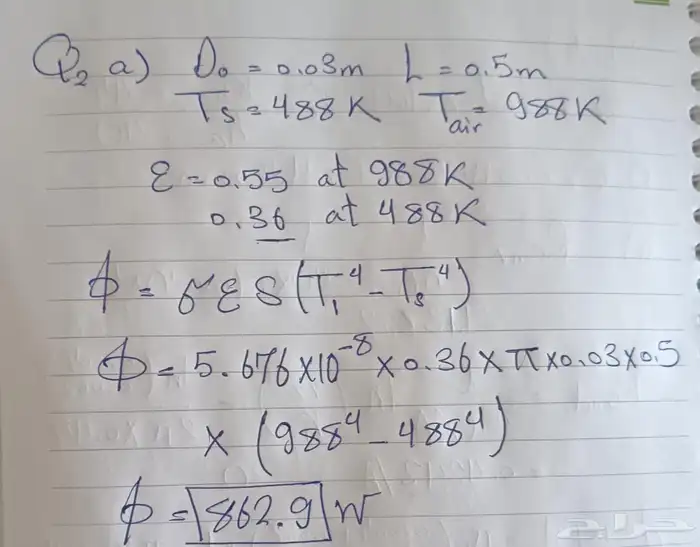 Q2 a) Do = 0.03m L = 0.5m
Ts = 488K Tair = 988K
ε = 0.55 at 988K
0.36 at 488K
ϕ = σ ε S (T1⁴ - Ts⁴)
ϕ = 5.676×10⁻⁸ × 0.36 × π × 0.03 × 0.5
× (988⁴ - 488⁴)
ϕ = 862.9 W
حراج